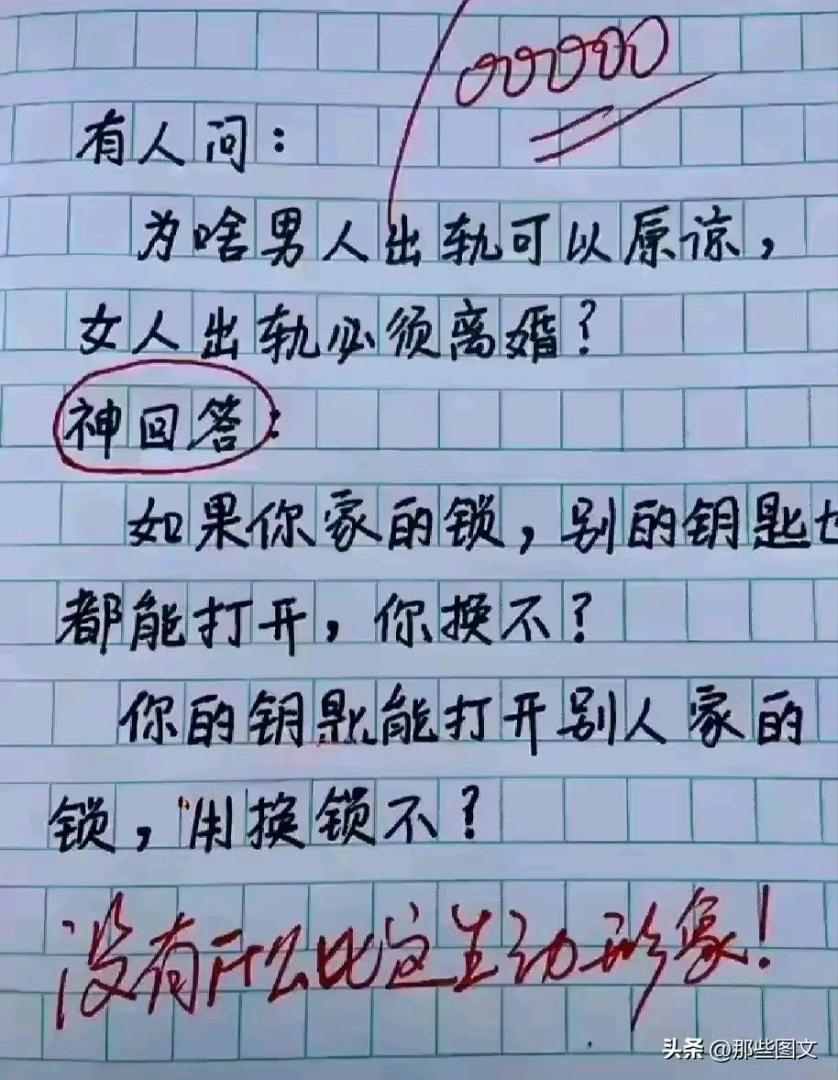 有人问：
为啥男人出轨可以原谅，
女人出轨必须离婚？
神回答：
如果你家的锁，别的钥匙也
都能打开，你换不？
你的钥匙能打开别人家的
锁，用换锁不？
没有什么比这生动形象！
头条 @那些图文